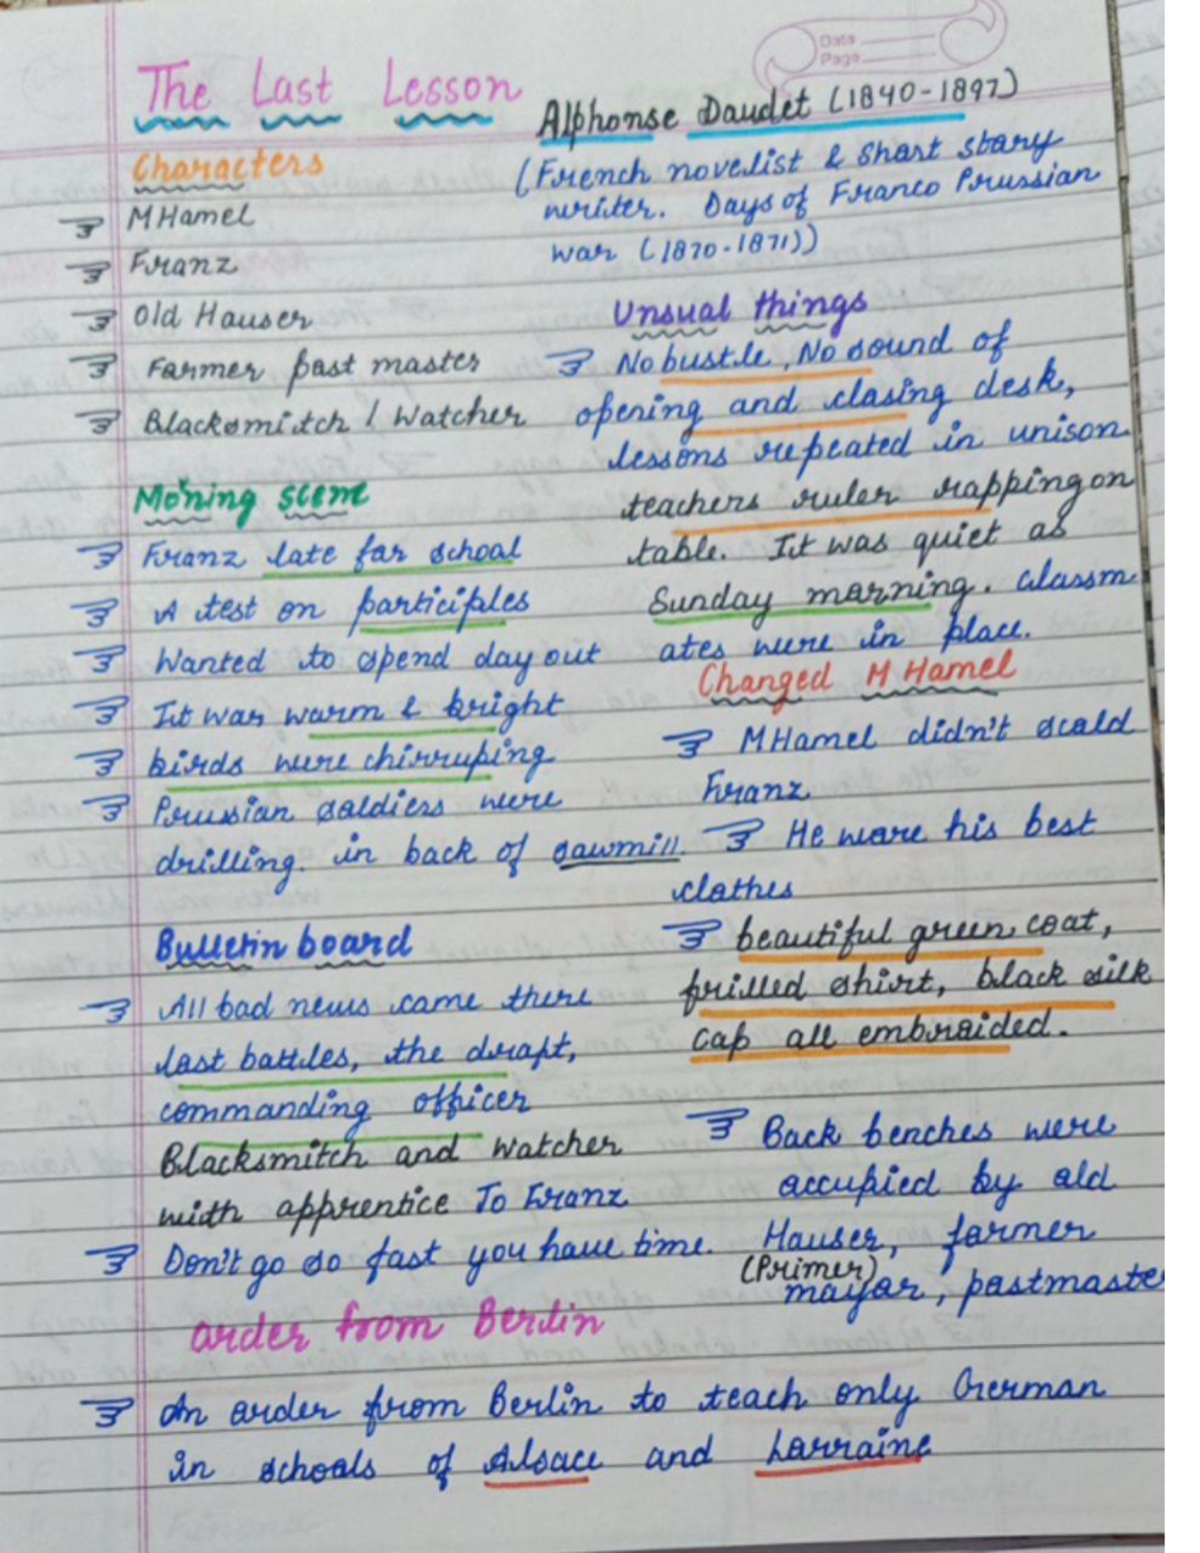 Date
Page
The Last Lesson
Alphonse Daudet (1840-1897)
(French novelist & short story
writer. Days of Franco Prussian
war (1870-1871))
Characters
M Hamel
Franz
Old Hauser
Farmer post master
Blacksmitch / Watcher
Morning scene
Franz late for school
A test on participles
Wanted to spend day out
It was warm & bright
birds were chirruping
Prussian soldiers were
drilling. in back of sawmill.
Bulletin board
All bad news came there
last battles, the draft,
commanding officer
Blacksmitch and watcher
with apprentice To Franz
Don't go so fast you have time.
Unsual things
No bustle, No sound of
opening and closing desk,
lessons repeated in unison
teachers ruler rapping on
table. It was quiet as
Sunday morning. classm
ates were in place.
Changed M Hamel
M Hamel didn't scold
Franz
He wore his best
clothes
beautiful green coat,
frilled shirt, black silk
cap all embroided.
Back benches were
occupied by old
Hauser, farmer
(Primer)
mayor, postmaste
order from Berlin
An order from Berlin to teach only German
in schools of Alsace and Lorraine